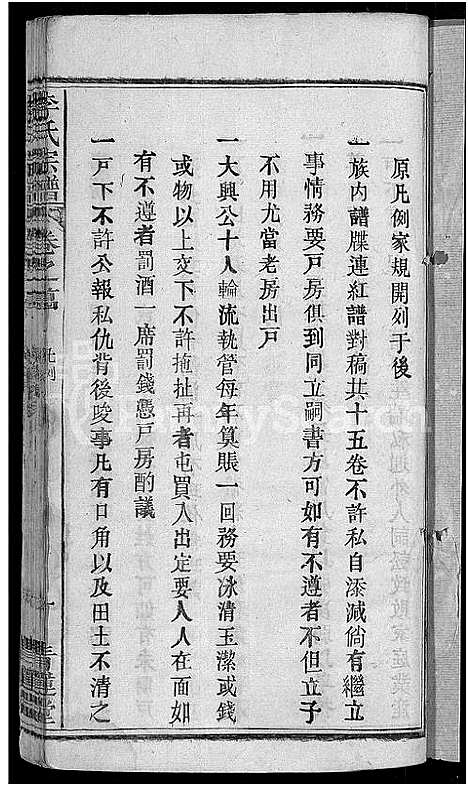 原凡例家規開列于後
一族內譜牒連紅譜對稿共十五卷不許私自添減倘有繼立
事情務要戶房俱到同立嗣書方可如有不遵者不但立子
不用尤當老房出戶
一大興公十人輪流執管每年算賬一回務要冰清玉潔或錢
或物以上交下不許拖扯再者屯買入出定要人人在面如
有不遵者罰酒一席罰錢憑戶房酌議
一戶下不許公報私仇背後唆事凡有口角以及田土不清之
李氏宗譜
凡例
青蓮堂